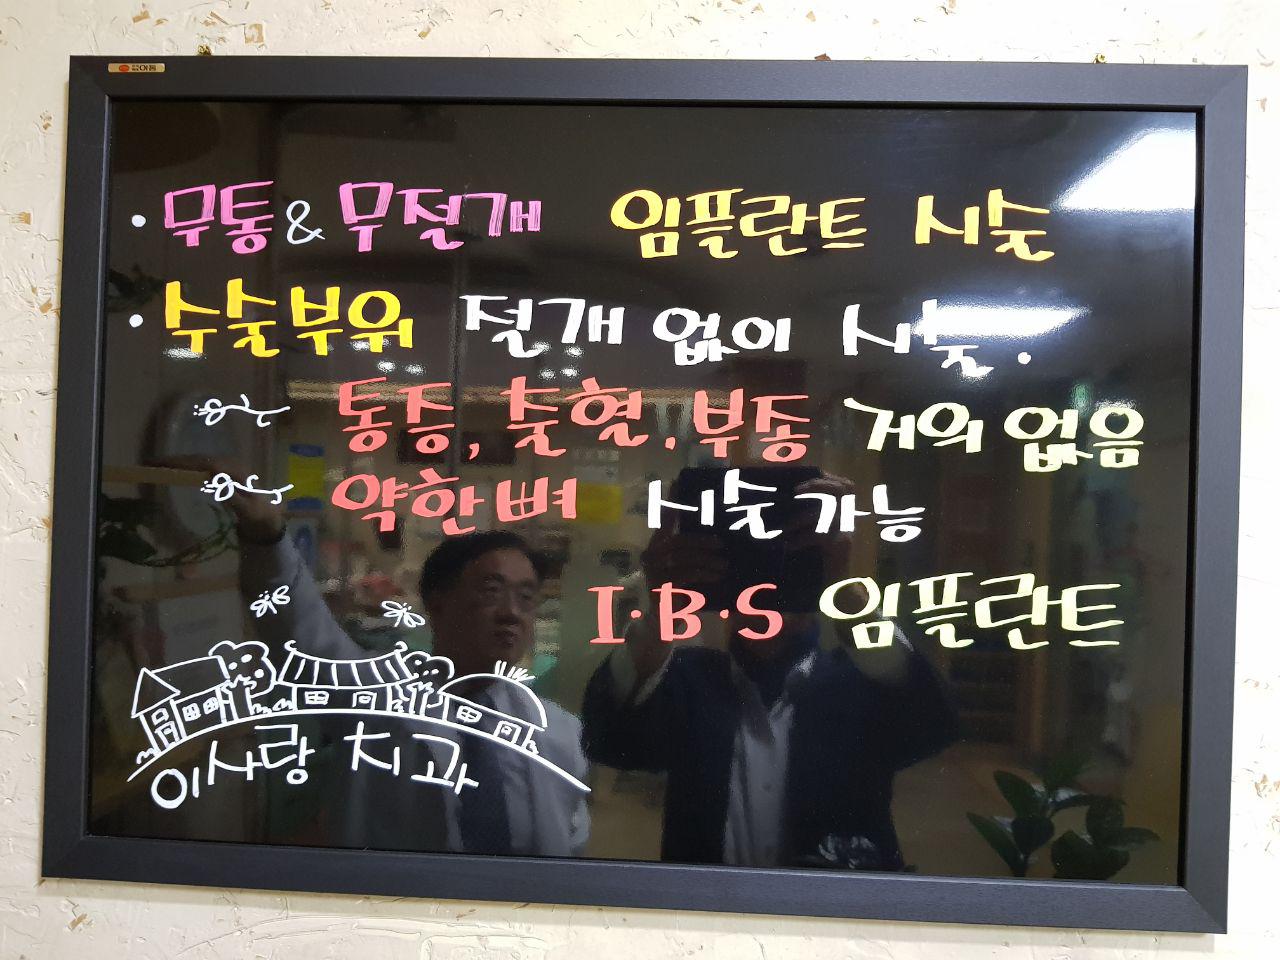 • 무통 & 무절개 임플란트 시술
• 수술부위 절개 없이 시술.
통증, 출혈, 부종 거의 없음
약한 뼈 시술 가능
I·B·S 임플란트
이사랑 치과